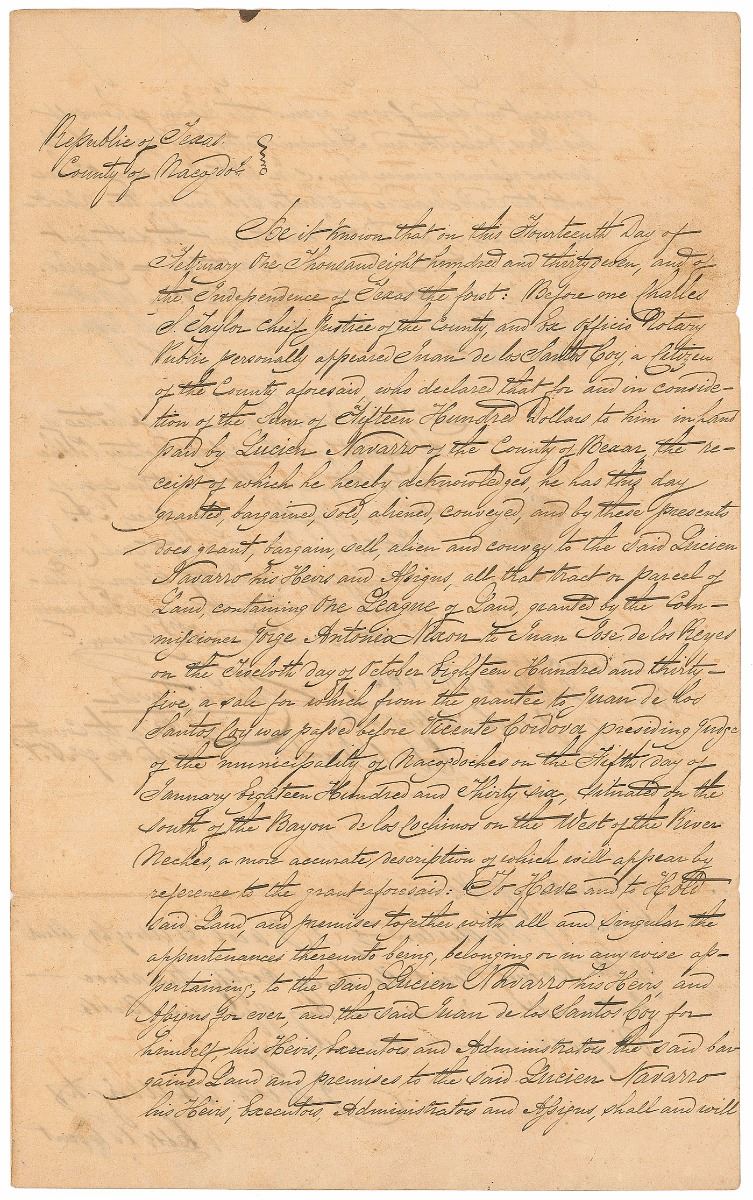 Republic of Texas.
County of Nacogdo:s
Be it known that on this Fourteenth Day of
February One Thousand eight hundred and thirty seven, and of
the Independence of Texas the first: Before me Charles
S. Taylor Chief Justice of the County, and Ex Officio Notary
Public personally appeared Juan de los Santos Coy, a Citizen
of the County aforesaid, who declared that for and in conside-
tion of the Sum of Fifteen Hundred Dollars to him in hand
paid by Lucien Navarro of the County of Bexar, the re-
ceipt of which he hereby acknowledges, he has this day
granted, bargained, sold, aliened, conveyed, and by these presents
does grant, bargain, sell, alien and convey to the said Lucien
Navarro his Heirs and Assigns, all that tract or parcel of
Land, containing One League of Land, granted by the Com-
missioner Jorge Antonio Nixon to Juan Jose de los Reyes
on the Twelfth day of October Eighteen Hundred and thirty-
five, a sale for which from the grantee to Juan de los
Santos Coy was passed before Vicente Cordova, presiding Judge
of the municipality of Nacogdoches on the Fifth day of
January Eighteen Hundred and Thirty six, situated on the
South of the Bayou de los Cochinos on the West of the River
Neches, a more accurate, description of which will appear by
reference to the grant aforesaid: To Have and to Hold
said Land and premises together with all and singular the
appurtenances thereunto being, belonging or in any wise ap-
pertaining, to the said Lucien Navarro his Heirs, and
Assigns for ever, and the said Juan de los Santos Coy for
himself, his Heirs, Executors and Administrators the said bar
gained Land and premises to the said Lucien Navarro
his Heirs, Executors, Administrators and Assigns, shall and will